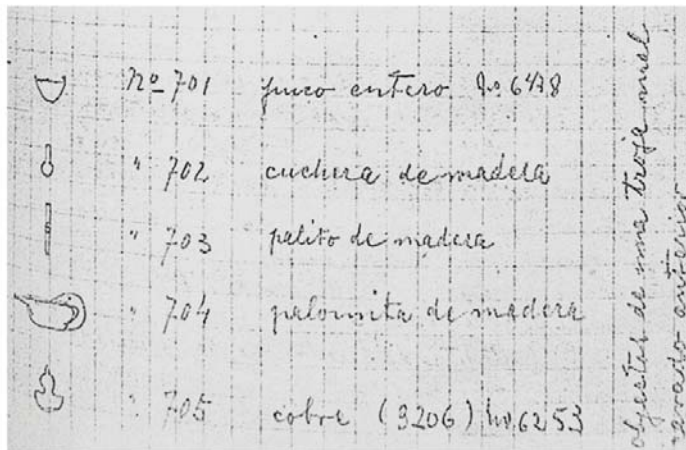 Nº 701 puco entero No. 6478
" 702 cuchara de madera
" 703 palito de madera
" 704 palomita de madera
" 705 cobre (3206) No. 6253
objetos de una troja
anterior